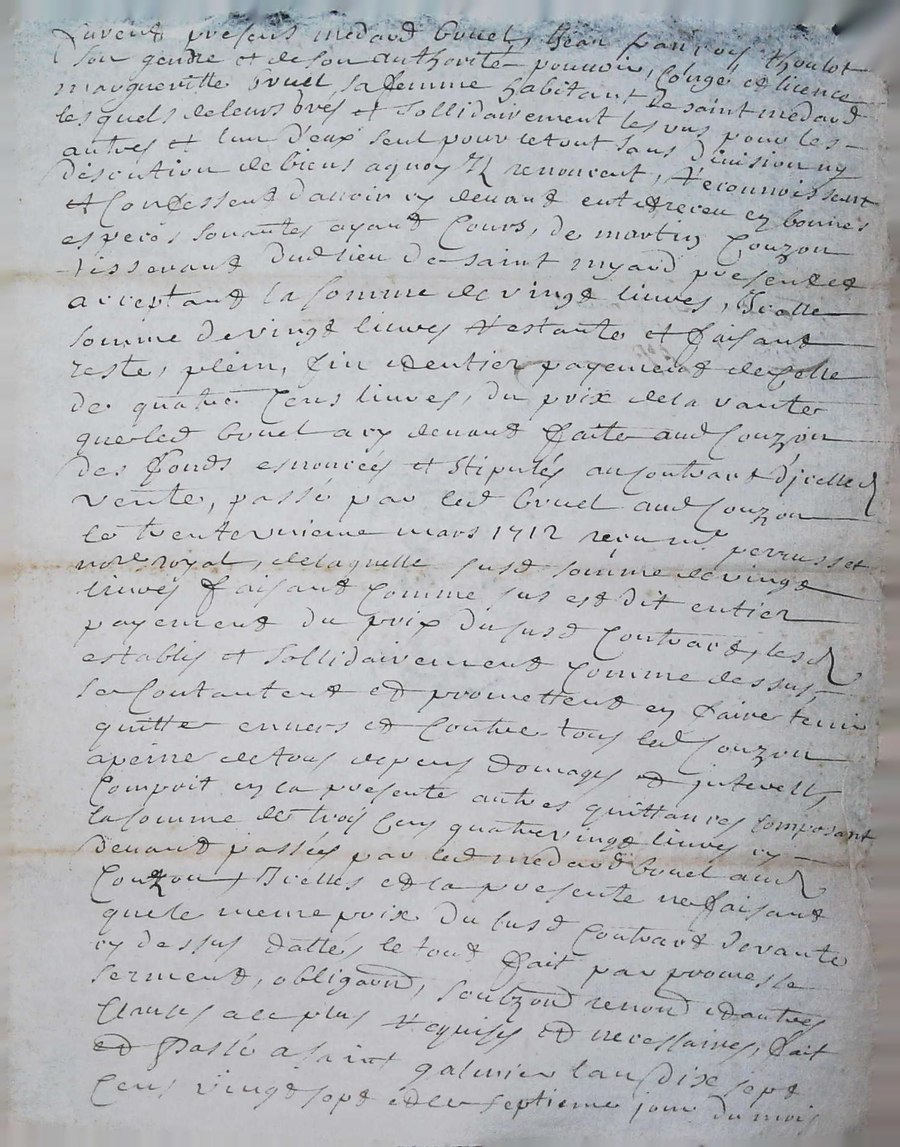 furent presens medard bruel, Jean françois thoulot
son gendre et de son authorité pouvoir, congé et licence
margueritte bruel sa femme habitant de saint medard
lesquels de leurs et sollidairement les uns pour les
autres et lun d'eux seul pour le tout sans division ny
discution de biens a quoy ilz renoncent, reconnoissent
et confessent d'avoir cy devant eu et receu en bonnes
especes sonantes ayant cours, de martin Couzon
tisserand dud lieu de saint myard present et
acceptant la somme de vingt livres, Icelle
somme de vingt livres restante et faisant
reste, plein, fin et entier payement de celle
de quatre cens livres, du prix de la vante
que led bruel a cy devant faite aud Couzon
des fonds esnoncés et stipulés au contract d'icelle
vente, passé par led bruel aud Couzon
le trente mars 1712 receu me perrusset
nore royal, de laquelle susd somme de vingt
livres faisant comme sus est dit entier
payement du prix du susd contract, lesd
establis et sollidairement comme dessus
se contantent et promettent en faire tenir
quitte envers et contre tous led Couzon
a peine de tous depens domages et interests,
comprit en la presente autres quittances composant
la somme de trois cens quatrevingt livres cy
devant passées par led medard bruel aud
Couzon, Icelles et la presente ne faisant
que le meme prix du susd contract de vante
cy dessus datté, le tout fait par promesse
serment, obligaon, renond et autres
clauses a ce plus requises et necessaires, fait
et passé a saint galmier lan dix sept
cens vingt sept et le septieme jour du mois